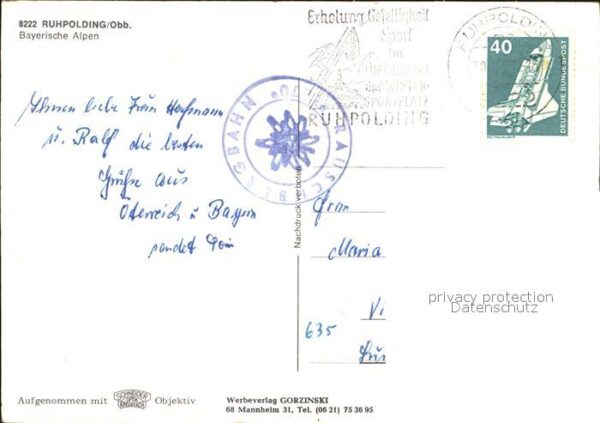 8222 RUHPOLDING/Obb.
Bayerische Alpen
Ihnen liebe Frau Hofmann
u. Ralf die besten
Grüße aus
Österreich u Bayern
sendet
Erholung, Geselligkeit
Sport
im
LUFTKURORT
und WINTER-
SPORTPLATZ
RUHPOLDING
RUHPOLDING
RAUSCHBERGBAHN
40
DEUTSCHE BUNDESPOST
Nachdruck verboten
Frau
Maria
635
privacy protection
Datenschutz
Aufgenommen mit SCHNEIDER KREUZNACH Objektiv
Werbeverlag GORZINSKI
68 Mannheim 31, Tel. (06 21) 75 36 95